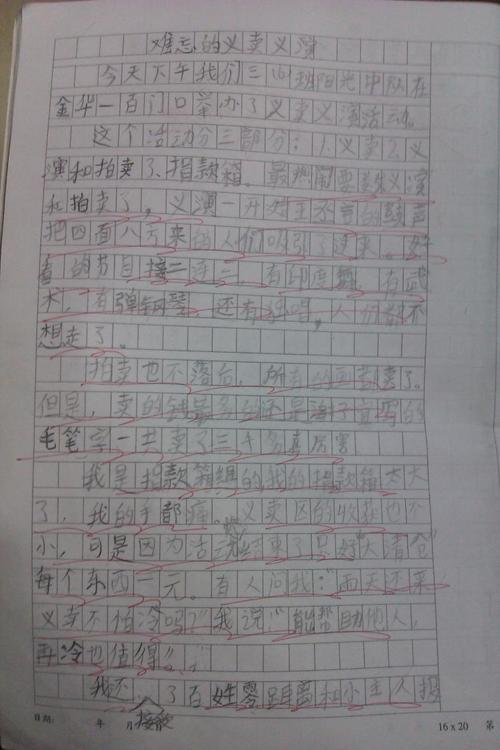 难忘的义卖义演
今天下午我们三(4)班阳光中队在
金华一百门口举办了义卖义演活动。
这个活动分三部分:1.义卖2.义
演和拍卖3.捐款箱。最热闹要数义演
和拍卖了,义演一开始主不宣的鼓声
把四面八方来的人们吸引了过来。好
看的节目接二连三,有印度舞,有武
术,有弹钢琴还有独唱,人们都不
想走了。
拍卖也不落后,所有的画都卖了。
但是,卖的钱最多的还是写的
毛笔字一共卖了三千多真厉害
我是捐款箱组的我的捐款箱太大
了,我的手都痛。义卖区的收获也不
小,可是因为活动快结束了只好“大清仓”
每个东西一元。有人问我:“雨天还来
义卖不怕冷吗?”我说:“能帮助他人,
再冷也值得!”
我还 了百姓零距离和小主人报
接受
日期: 年 月 16×20 第